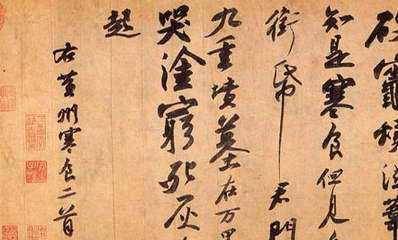 破竈燒濕葦
知是寒食但見
銜帋君門
九重墳墓在万里
哭塗窮死灰
起
右黃州寒食二首